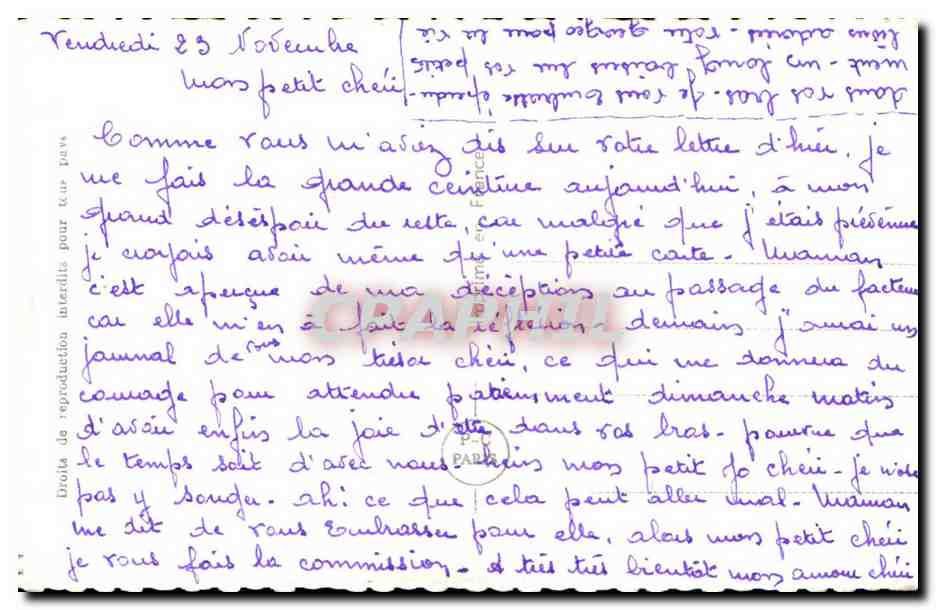 Vendredi 23 Novembre
Mon petit chéri
Comme vous m'aviez dis sur votre lettre d'hier, je
me fais la grande ceinture aujourd'hui, à mon
grand déséspoir du reste, car malgré que j'étais prévenue
je croyais avoir même qu'une petite carte - Maman
c'est aperçue de ma décéption au passage du facteur
car elle m'en a fait la réflétion - demain j'aurai un
journal de vous mon trésor chéri, ce qui me donnera du
courage pour attendre patiemment dimanche matin
d'avoir enfin la joie d'être dans vos bras - pourvu que
le temps soit d'avec nous - hein mon petit Jo chéri - je n'ose
pas y songer - ah! ce que cela peut aller mal - Maman
me dit de vous embrasser pour elle, alors mon petit chéri
je vous fais la commission - A très très bientôt mon amour chéri
dans vos bras - je vous embrasse éperdu-
ment - un long baiser sur vos petits
liens adorés - votre georgeo pour la vie
Droits de reproduction interdits pour tous pays
en France
P-C
PARIS
CPAPHIL